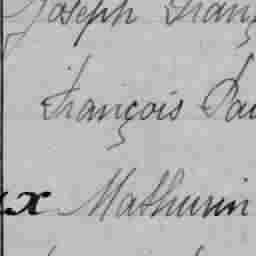 Joseph Franç
François Pau
x Mathurin